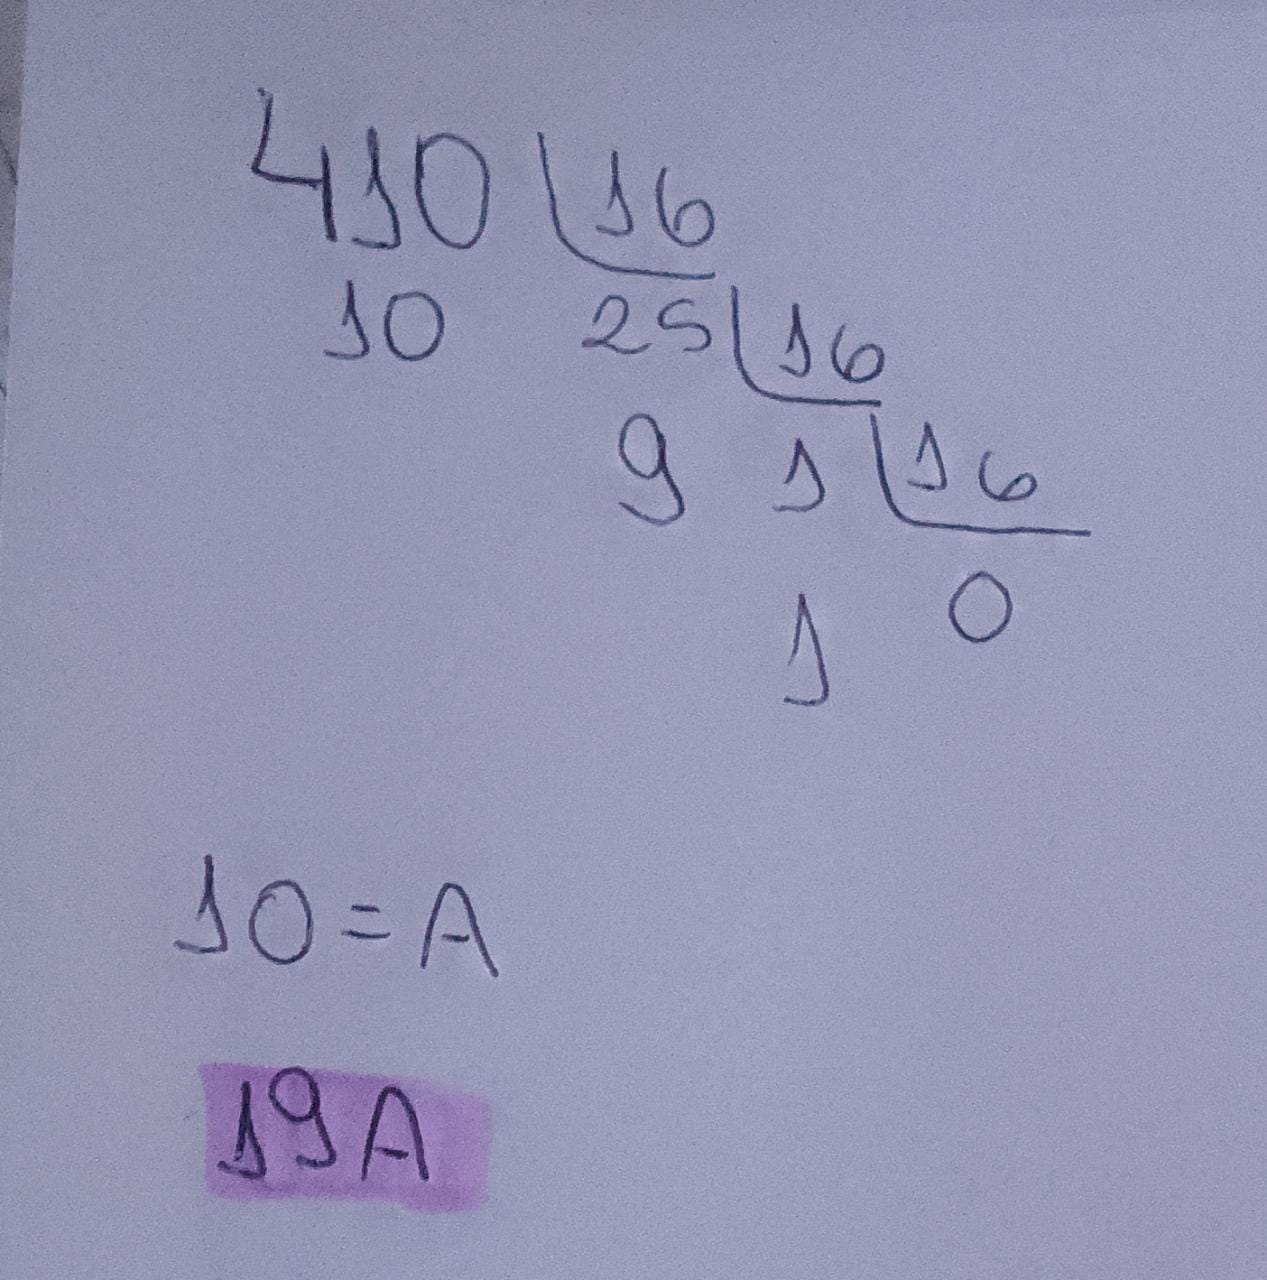 410 16
10 25 16
9 1 16
1 0
10 = A
19A